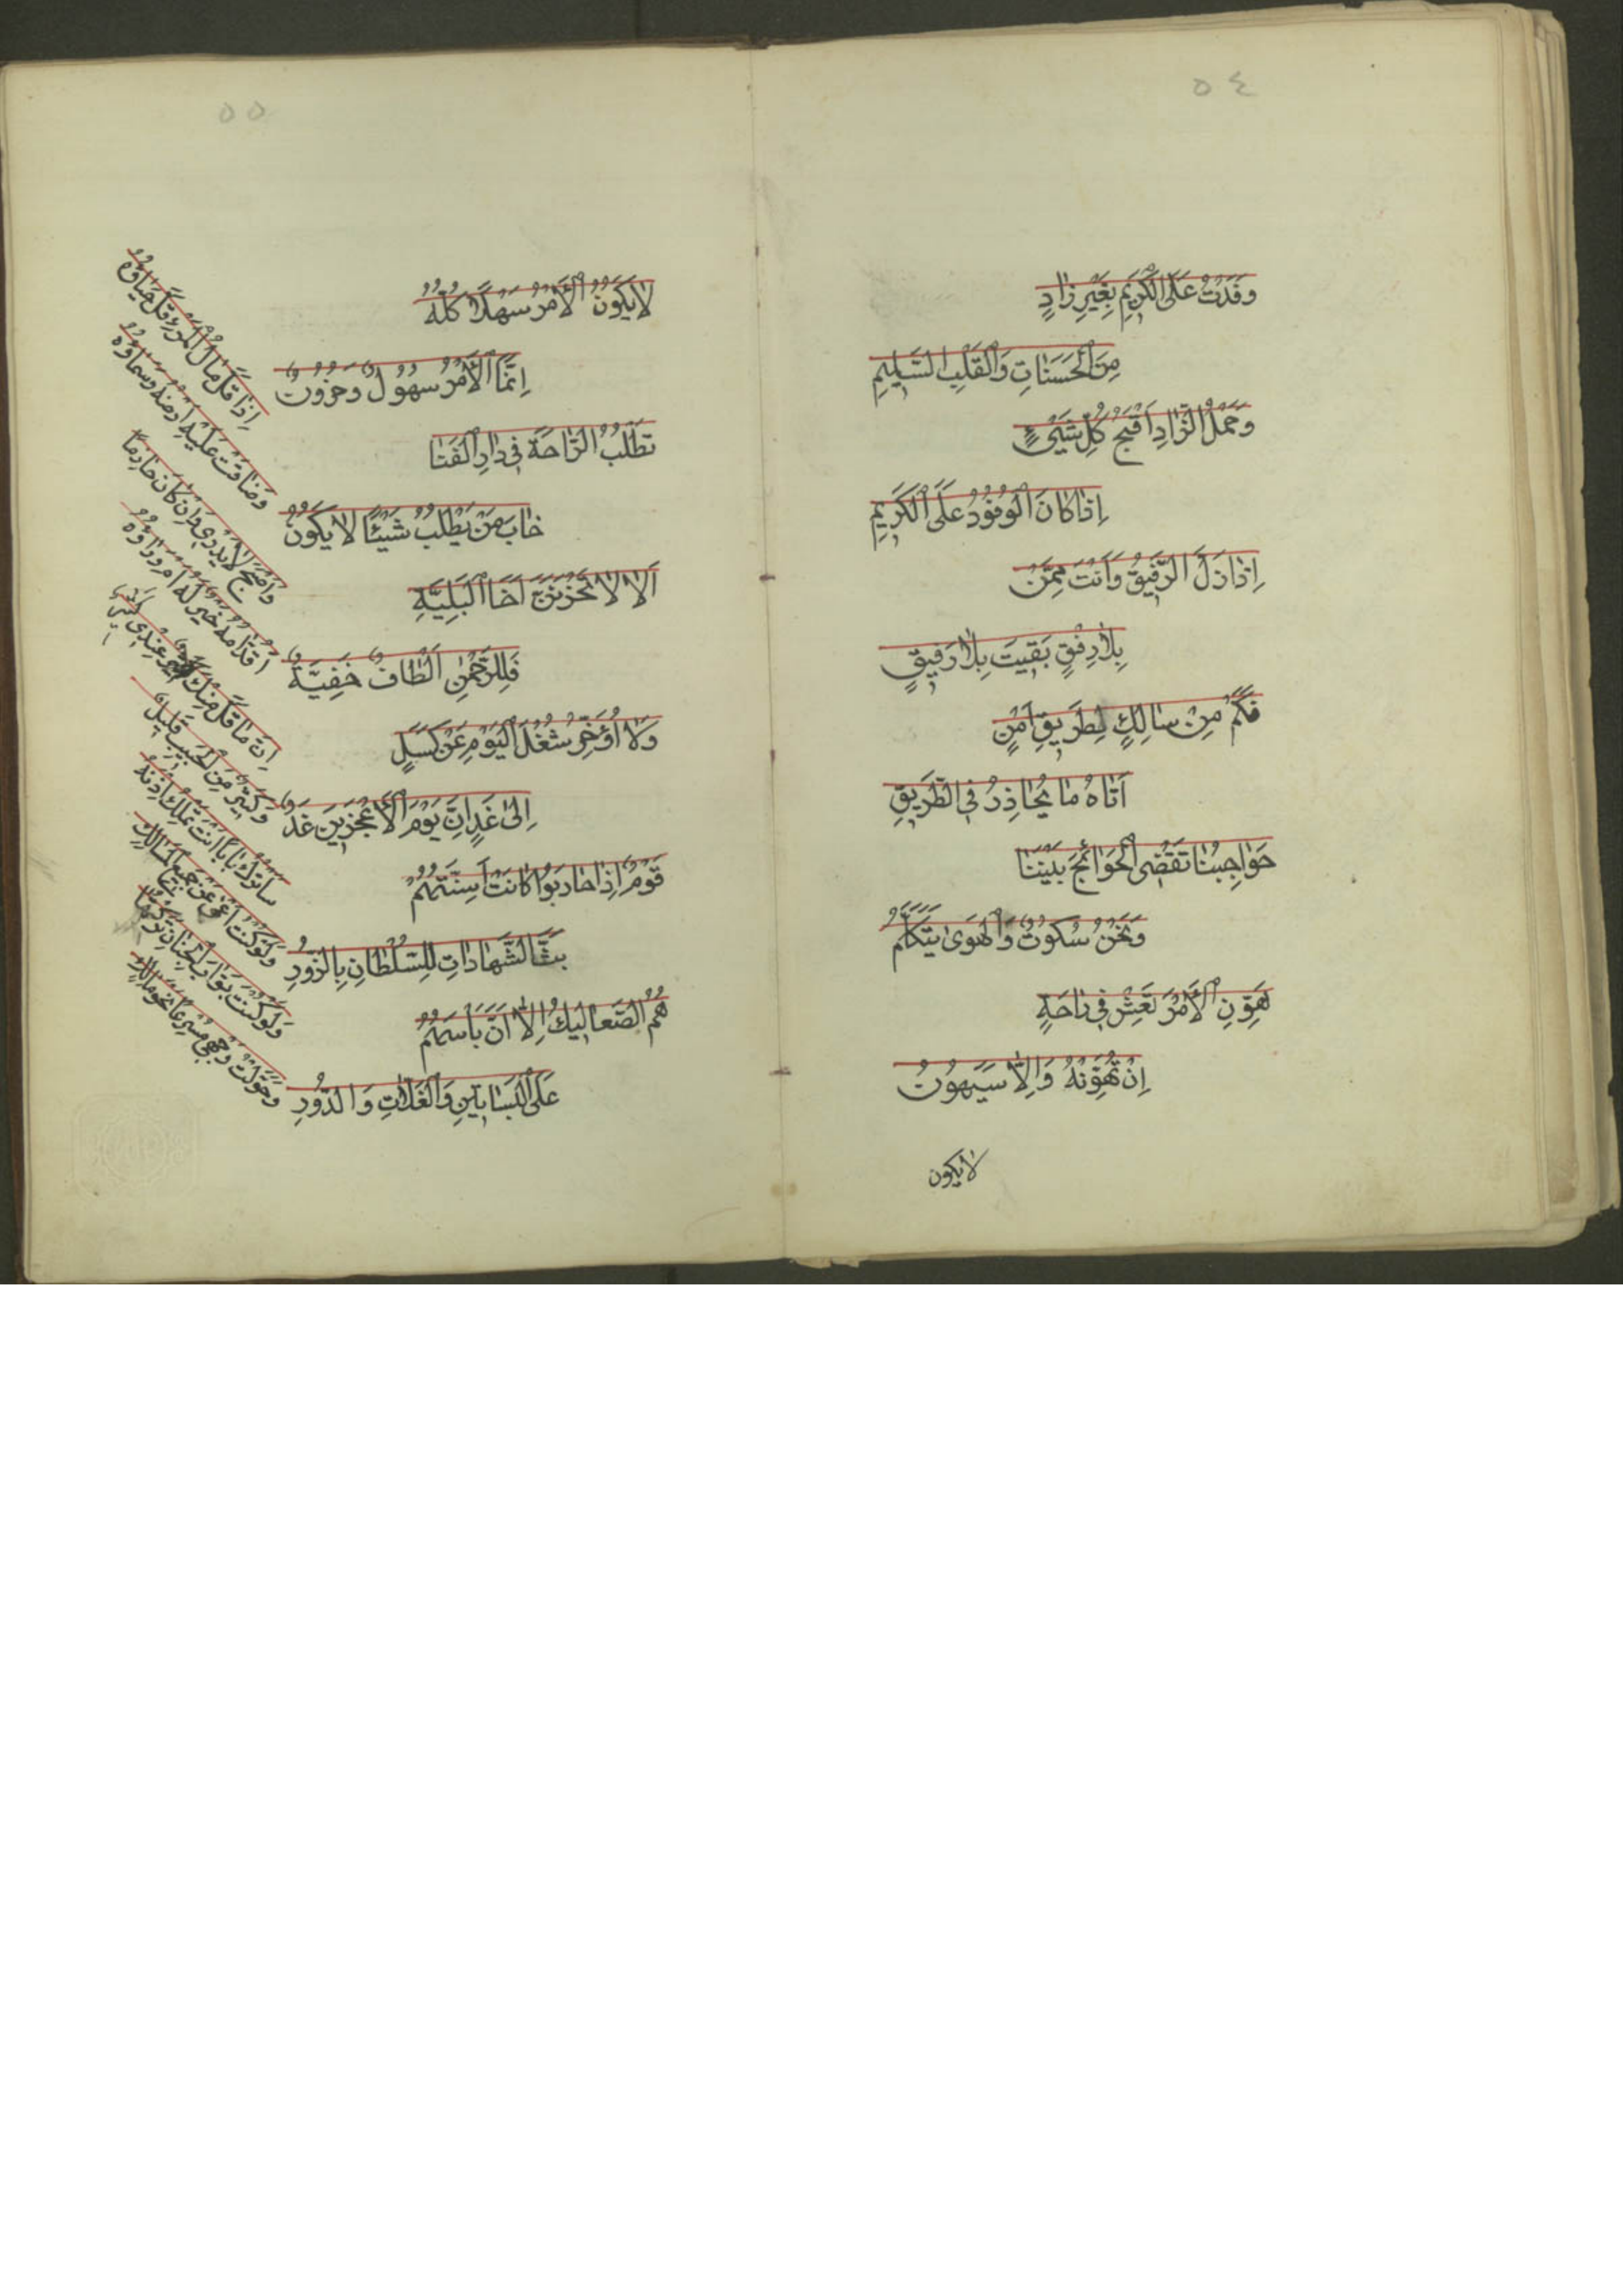 ٥٤
وَفَدْتُ عَلَى الْكَرِيمِ بِغَيْرِ زَادٍ
مِنَ الْحَسَنَاتِ وَالْقَلْبِ السَّلِيمِ
وَحَمْلُ الزَّادِ اَقْبَحُ كُلِّ شَيْءٍ
اِذَا كَانَ الْوُفُودُ عَلَى الْكَرِيمِ
اِذَا ذَلَّ الرَّفِيقُ وَاَنْتَ مِمَّنْ
بِلَا رِفْقٍ بَقِيتَ بِلَا رَفِيقٍ
فَكَمْ مِنْ سَالِكٍ لِطَرِيقِ اَمْنٍ
اَتَاهُ مَا يُحَاذِرُ فِي الطَّرِيقِ
حَوَاجِبُنَا تَقْضِى الْحَوَائِجَ بَيْنَنَا
وَنَحْنُ سُكُوتٌ وَالْهَوَى يَتَكَلَّمُ
هَوِّنِ الْاَمْرَ تَعِشْ فِي رَاحَةٍ
اِنْ تُهَوِّنْهُ وَاِلَّا سَيَهُونُ
لايكون
٥٥
لَا يَكُونُ الْاَمْرُ سَهْلًا كُلُّهُ
اِنَّمَا الْاَمْرُ سُهُولٌ وَحُزُونٌ
تَطْلُبُ الرَّاحَةَ فِي دَارِ الْفَنَا
خَابَ مَنْ يَطْلُبُ شَيْئًا لَا يَكُونُ
اَلَا لَا تَحْزَنَنَّ اَخَا الْبَلِيَّةِ
فَلِلرَّحْمٰنِ اَلْطَافٌ خَفِيَّةٌ
وَلَا اُؤَخِّرُ شُغْلَ الْيَوْمِ عَنْ كَسَلٍ
اِلَى غَدٍ اِنَّ يَوْمَ الْاَعْجَزِينَ غَدٌ
قَوْمٌ اِذَا حَارَبُوا كَانَتْ اَسِنَّتُهُمْ
بَثَّ الشَّهَادَاتِ لِلسُّلْطَانِ بِالزُّورِ
هُمُ الصَّعَالِيكُ اِلَّا اَنَّ بَاْسَهُمُ
عَلَى الْبَسَاتِينِ وَالْغَلَّاتِ وَالدُّورِ
اِذَا قَلَّ مَالُ الْمَرْءِ قَلَّ حَيَاؤُهُ
وَضَاقَتْ عَلَيْهِ اَرْضُهُ وَسَمَاؤُهُ
وَاَصْبَحَ لَا يَدْرِى وَاِنْ كَانَ حَازِمًا
اَقُدَّامُهُ خَيْرٌ لَهُ اَمْ وَرَاؤُهُ
اِنَّ مَا قَلَّ مِنْكَ عِنْدِى
وَكَثِيرٌ مِنَ الْحَبِيبِ قَلِيلٌ
سَاَتْرُكُ بَابًا اَنْتَ تَمْلِكُ اِذْنَهُ
وَلَوْ كُنْتُ اَعْمَى عَنْ جَمِيعِ الْمَسَالِكِ
وَلَوْ كُنْتَ بَوَّابَ الْجِنَانِ تَرَكْتُهَا
وَحَوَّلْتُ وَجْهِى مُسْرِعًا نَحْوَ مَالِكِ